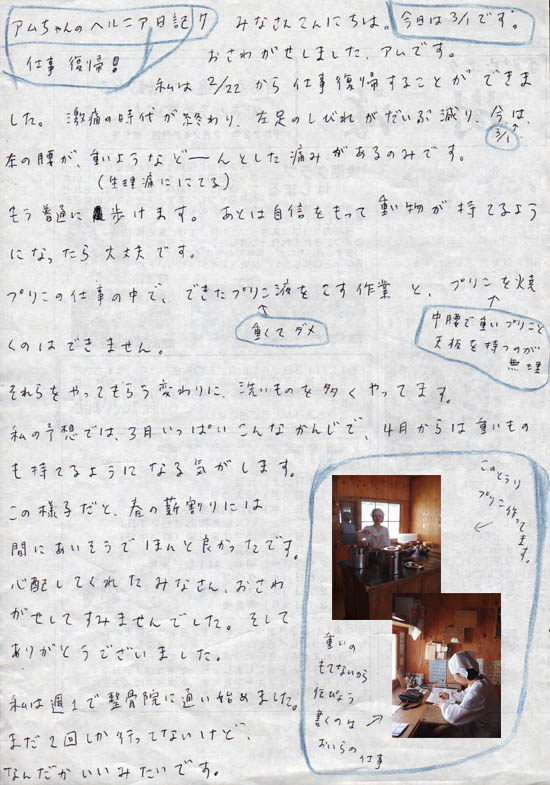 アムちゃんのヘルニア日記 7
仕事復帰!
みなさんこんにちは。今日は3/1です。
おさわがせしました、アムです。
私は 2/22 から仕事復帰することができま
した。激痛の時代が終わり、左足のしびれがだいぶ減り、今は、
3/1
左の腰が、重いようなど〜んとした痛みがあるのみです。
(生理痛ににてる)
もう普通に歩けます。あとは自信をもって重い物が持てるよう
になったら大丈夫です。
プリンの仕事の中で、できたプリン液をこす作業と、プリンを焼
重くてダメ
中腰で重いプリンと
天板を持つのが
無理
くのはできません。
それらをやってもらう変わりに、洗いものを多くやってます。
私の予想では、3月いっぱいこんなかんじで、4月からは重いもの
も持てるようになる気がします。
この様子だと、春の薪割りには
間にあいそうでほんと良かったです。
心配してくれたみなさん、おさわ
がせしてすみませんでした。そして
ありがとうございました。
私は週1で整骨院に通い始めました。
まだ2回しか行ってないけど、
なんだかいいみたいです。
このとうり
プリン作ってます。
重いの
もてないから
伝ぴょう
書くのは
おいらの
仕事